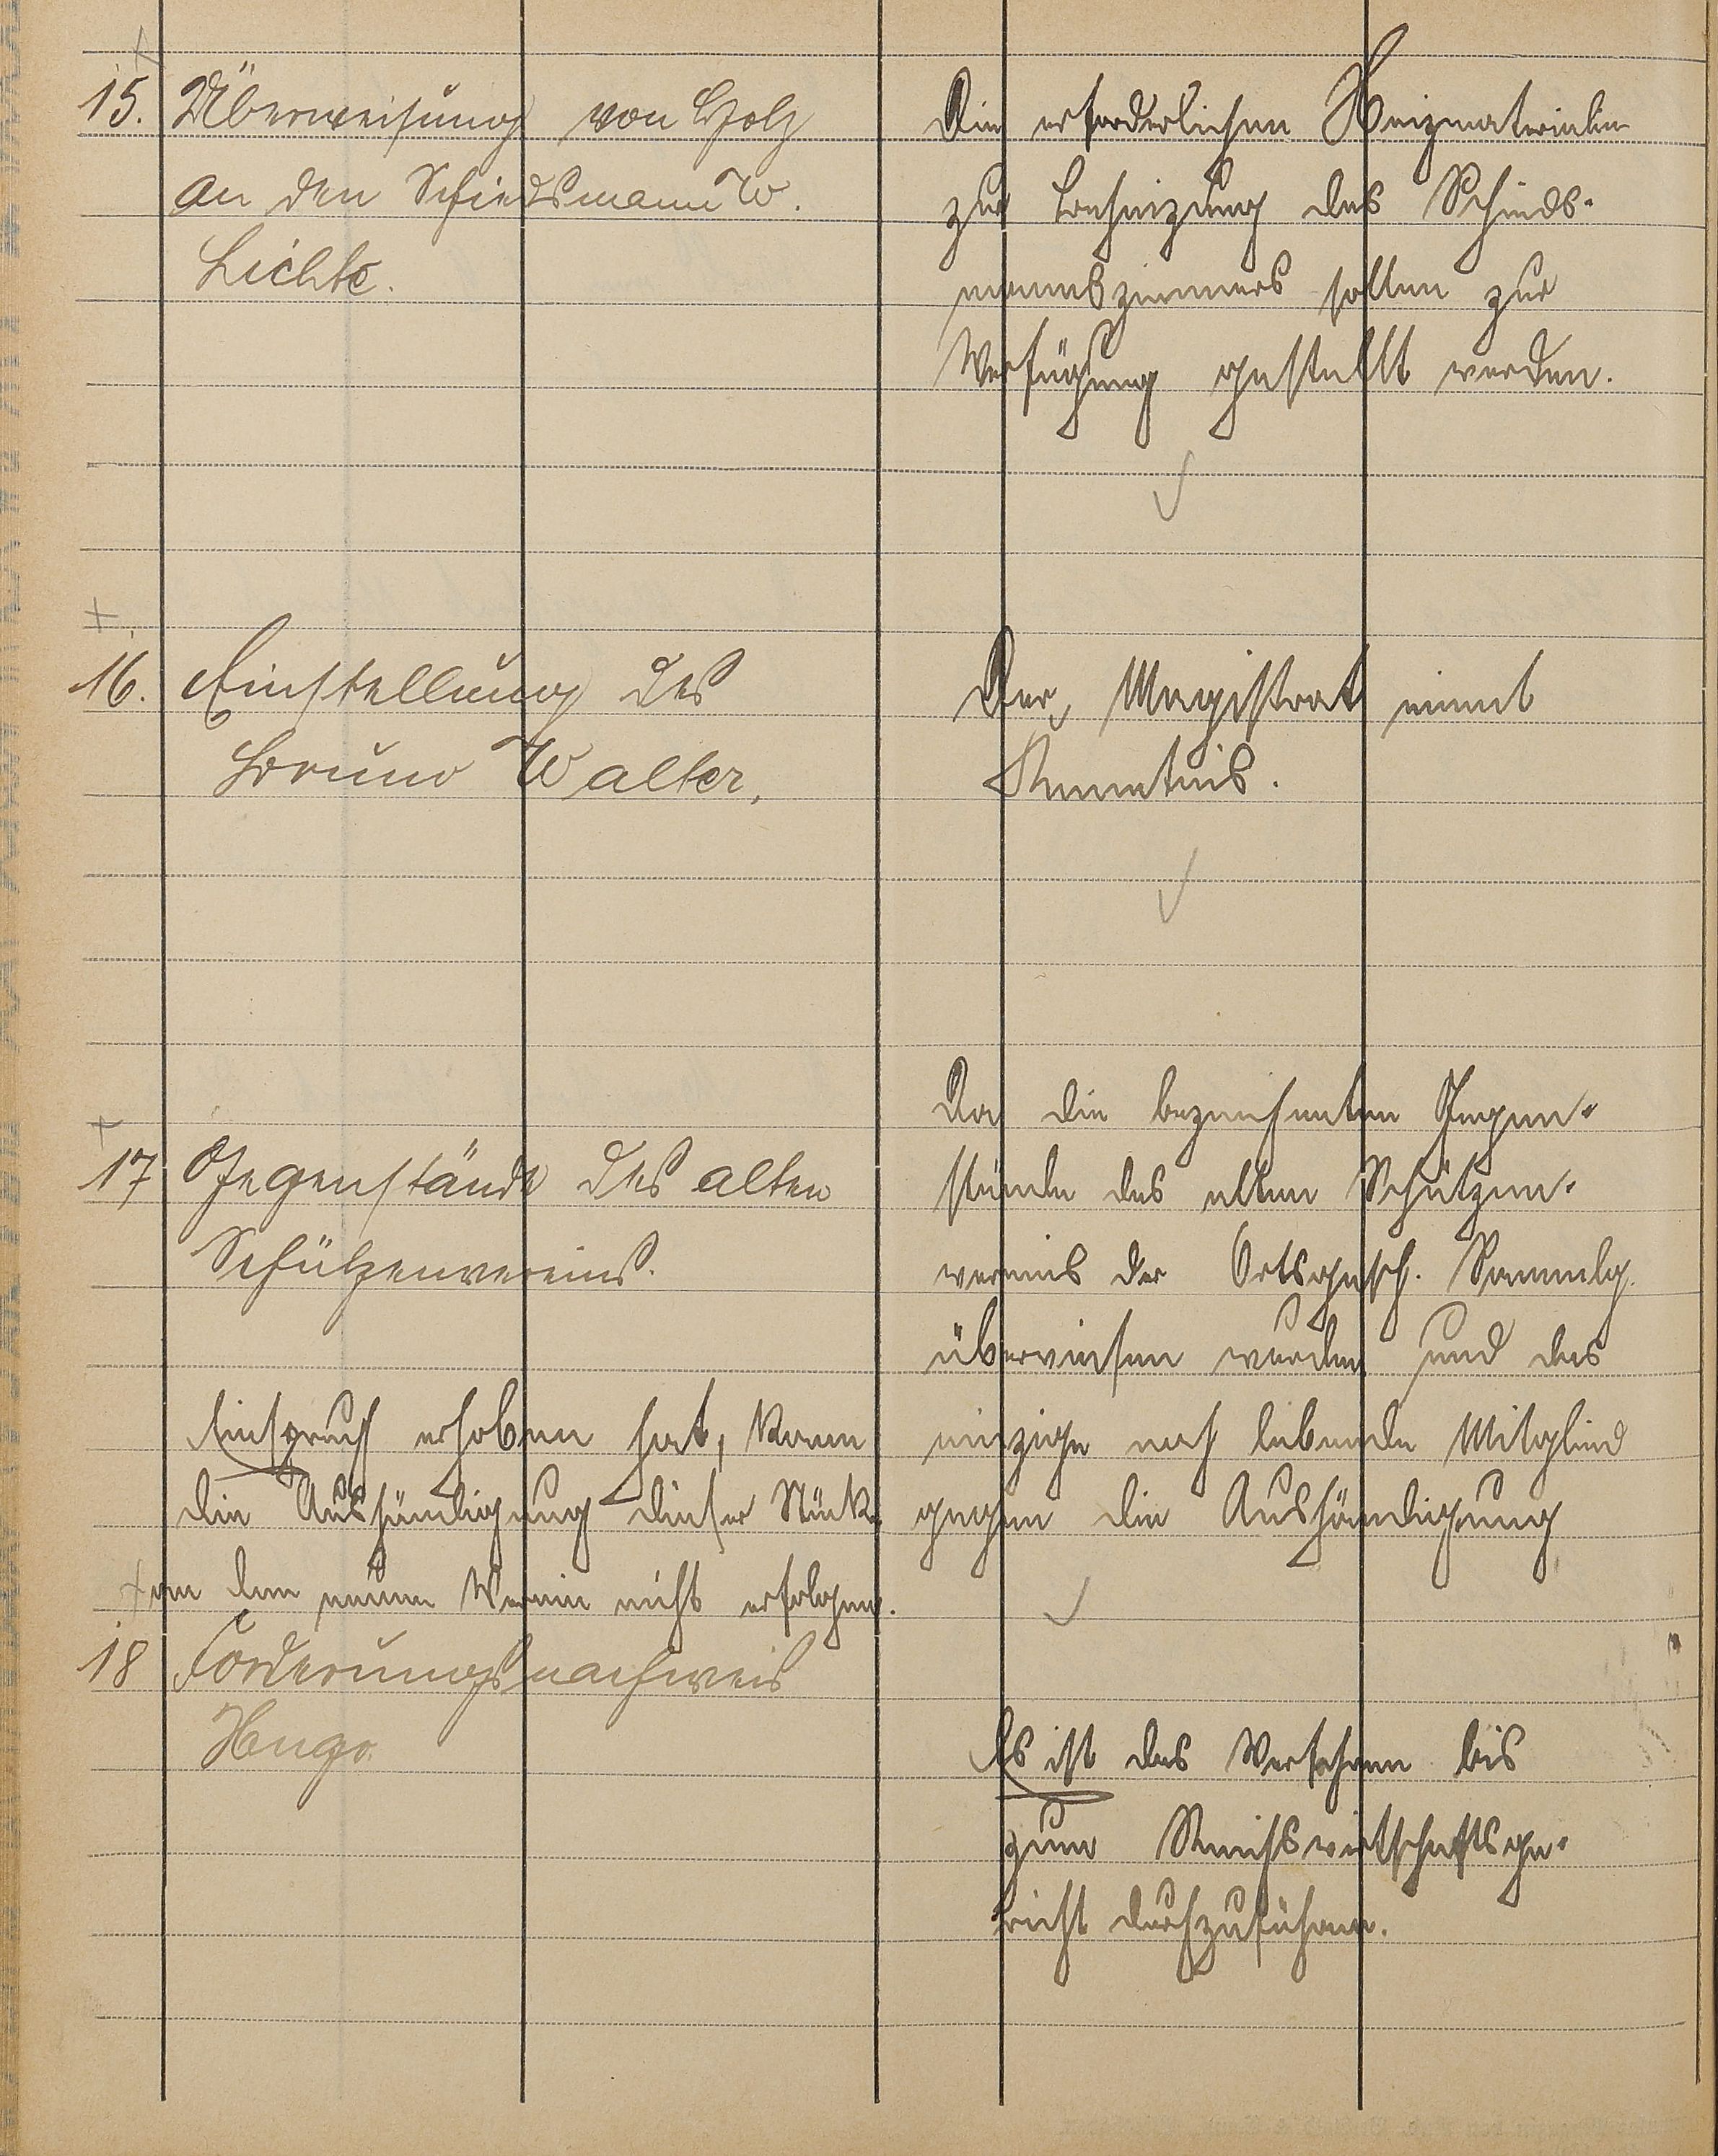 15. Überweisung von Holz
an den Schiedsmann W.
Lichte.
Die erforderlichen Heizmaterialien
zur Beheizung des Schieds-
mannszimmers sollen zur
Verfügung gestellt werden.
16. Einstellung des
Bruno Walter.
Der Magistrat nimmt
Kenntnis.
17 Gegenstände des alten
Schützenvereins.
Da die bezeichneten Gegen-
stände des alten Schützen-
vereins der Ortsgesch. Sammlg.
überwiesen wurden und das
einzige noch lebende Mitglied
gegen die Aushändigung
Einspruch erhoben hat, kann
die Aushändigung dieser Stücke
an den neuen Verein nicht erfolgen.
18 Forderungsnachweis
Hugo
Es ist das Verfahren bis
zum Reichswirtschaftsge-
richt durchzuführen.